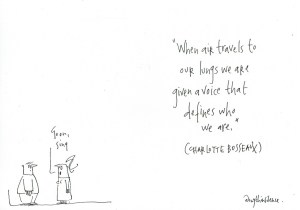 Goon,
Sing
"When air travels to
our lungs we are
given a voice that
defines who
we are."
(CHARLOTTE BOSSEAUX)